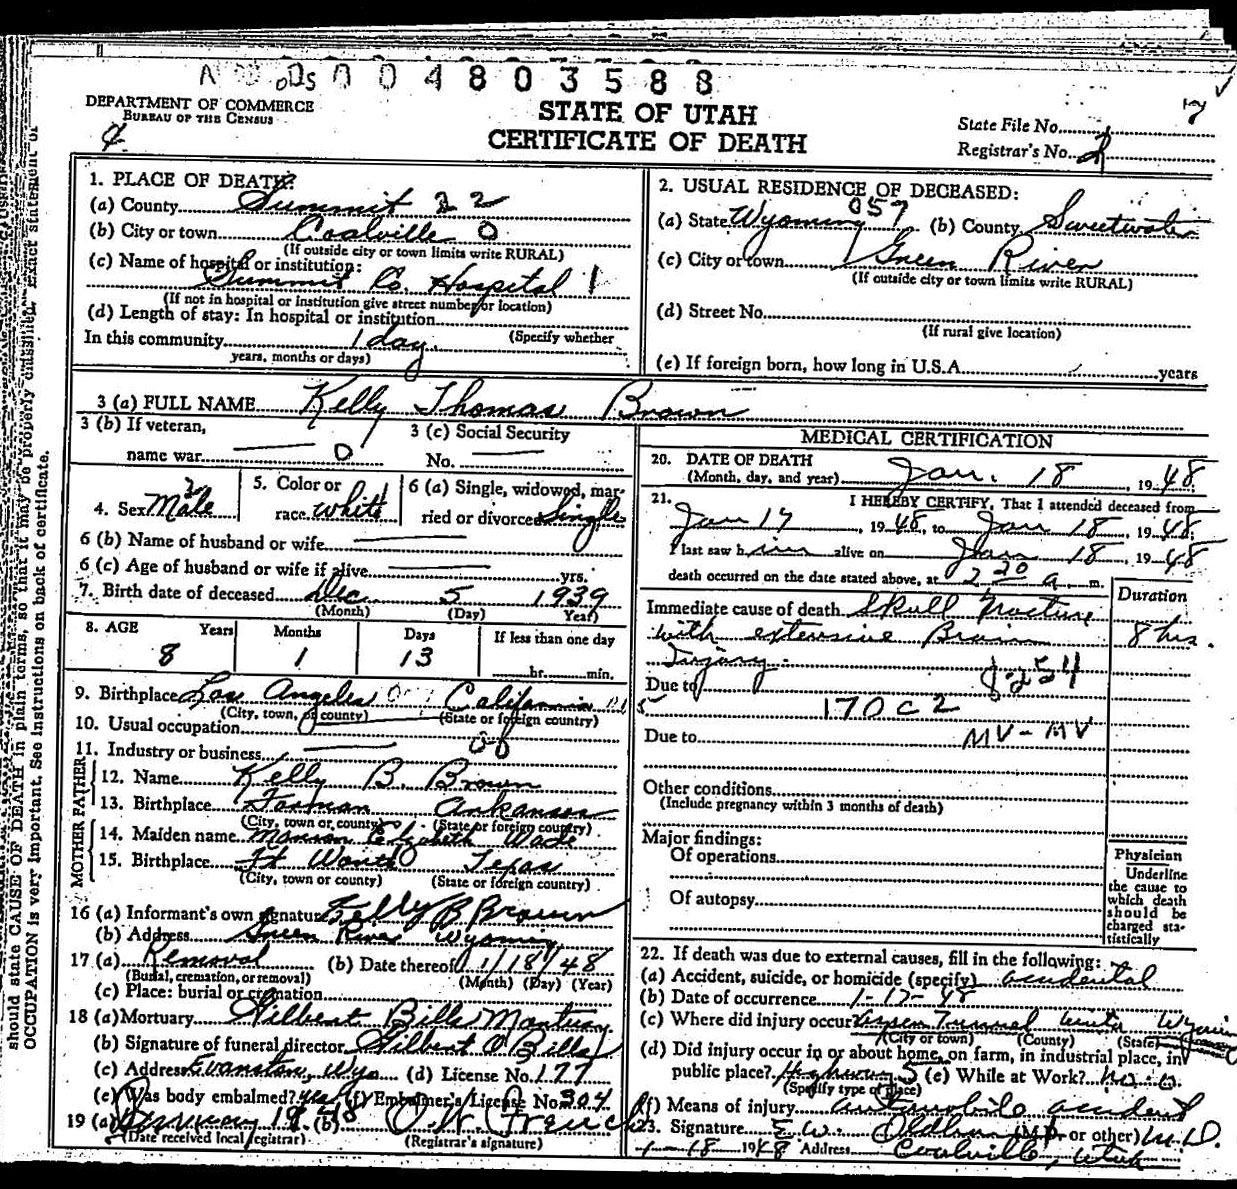 0004803588
DEPARTMENT OF COMMERCE
BUREAU OF THE CENSUS
STATE OF UTAH
CERTIFICATE OF DEATH
State File No.
Registrar's No. 2
1. PLACE OF DEATH:
(a) County Summit 22
(b) City or town Coalville 0
(If outside city or town limits write RURAL)
(c) Name of hospital or institution:
Summit Co. Hospital 1
(If not in hospital or institution give street number or location)
(d) Length of stay: In hospital or institution
In this community 1 day (Specify whether
years, months or days)
2. USUAL RESIDENCE OF DECEASED:
(a) State Wyoming 057 (b) County Sweetwater
(c) City or town Green River
(If outside city or town limits write RURAL)
(d) Street No.
(If rural give location)
(e) If foreign born, how long in U.S.A. years
3 (a) FULL NAME Kelly Thomas Brown
3 (b) If veteran, 3 (c) Social Security
name war 0 No.
4. Sex Male 5. Color or race white 6 (a) Single, widowed, married or divorced Single
6 (b) Name of husband or wife
6 (c) Age of husband or wife if alive yrs.
7. Birth date of deceased Dec. 5 1939
(Month) (Day) Year)
8. AGE Years Months Days If less than one day
8 1 13 hr. min.
9. Birthplace Los Angeles California
(City, town, or county) (State or foreign country)
10. Usual occupation
11. Industry or business
FATHER
12. Name Kelly B. Brown
13. Birthplace Forman Arkansas
(City, town or county) (State or foreign country)
MOTHER
14. Maiden name Elizabeth Wade
15. Birthplace Ft Worth Texas
(City, town or county) (State or foreign country)
16 (a) Informant's own signature Kelly B Brown
(b) Address Green River Wyoming
17 (a) Removal (b) Date thereof 1/18/48
(Burial, cremation, or removal) (Month) (Day) (Year)
(c) Place: burial or cremation
18 (a) Mortuary Gilbert Bills Mortuary
(b) Signature of funeral director Gilbert O Bills
(c) Address Evanston, Wyo (d) License No. 177
(e) Was body embalmed? yes (f) Embalmer's License No. 304
19 (a) January 19 48 (b) O. W. French
(Date received local registrar) (Registrar's signature)
MEDICAL CERTIFICATION
20. DATE OF DEATH
(Month, day, and year) Jan. 18, 1948
21. I HEREBY CERTIFY, That I attended deceased from
Jan 17, 1948, to Jan 18, 1948;
I last saw him alive on Jan 18, 1948
death occurred on the date stated above, at 2 20 a m.
Duration
Immediate cause of death Skull fracture
with extensive Brain 8 hrs.
Injury.
Due to
170 c 2
Due to MV-MV
Other conditions
(Include pregnancy within 3 months of death)
Major findings:
Of operations
Of autopsy
Physician
Underline
the cause to
which death
should be
charged sta-
tistically
22. If death was due to external causes, fill in the following:
(a) Accident, suicide, or homicide (specify) accidental
(b) Date of occurrence 1-17-48
(c) Where did injury occur? Tunnel Uinta
(City or town) (County) (State)
(d) Did injury occur in or about home, on farm, in industrial place, in
public place? Highway (e) While at Work? no
(Specify type of place)
(f) Means of injury automobile accident
23. Signature E. W. Oldham (M.D. or other) M.D.
1-18 1948 Address Coalville, Utah
should state CAUSE OF DEATH in plain terms, so that it may be properly classified. Exact statement of
OCCUPATION is very important. See instructions on back of certificate.